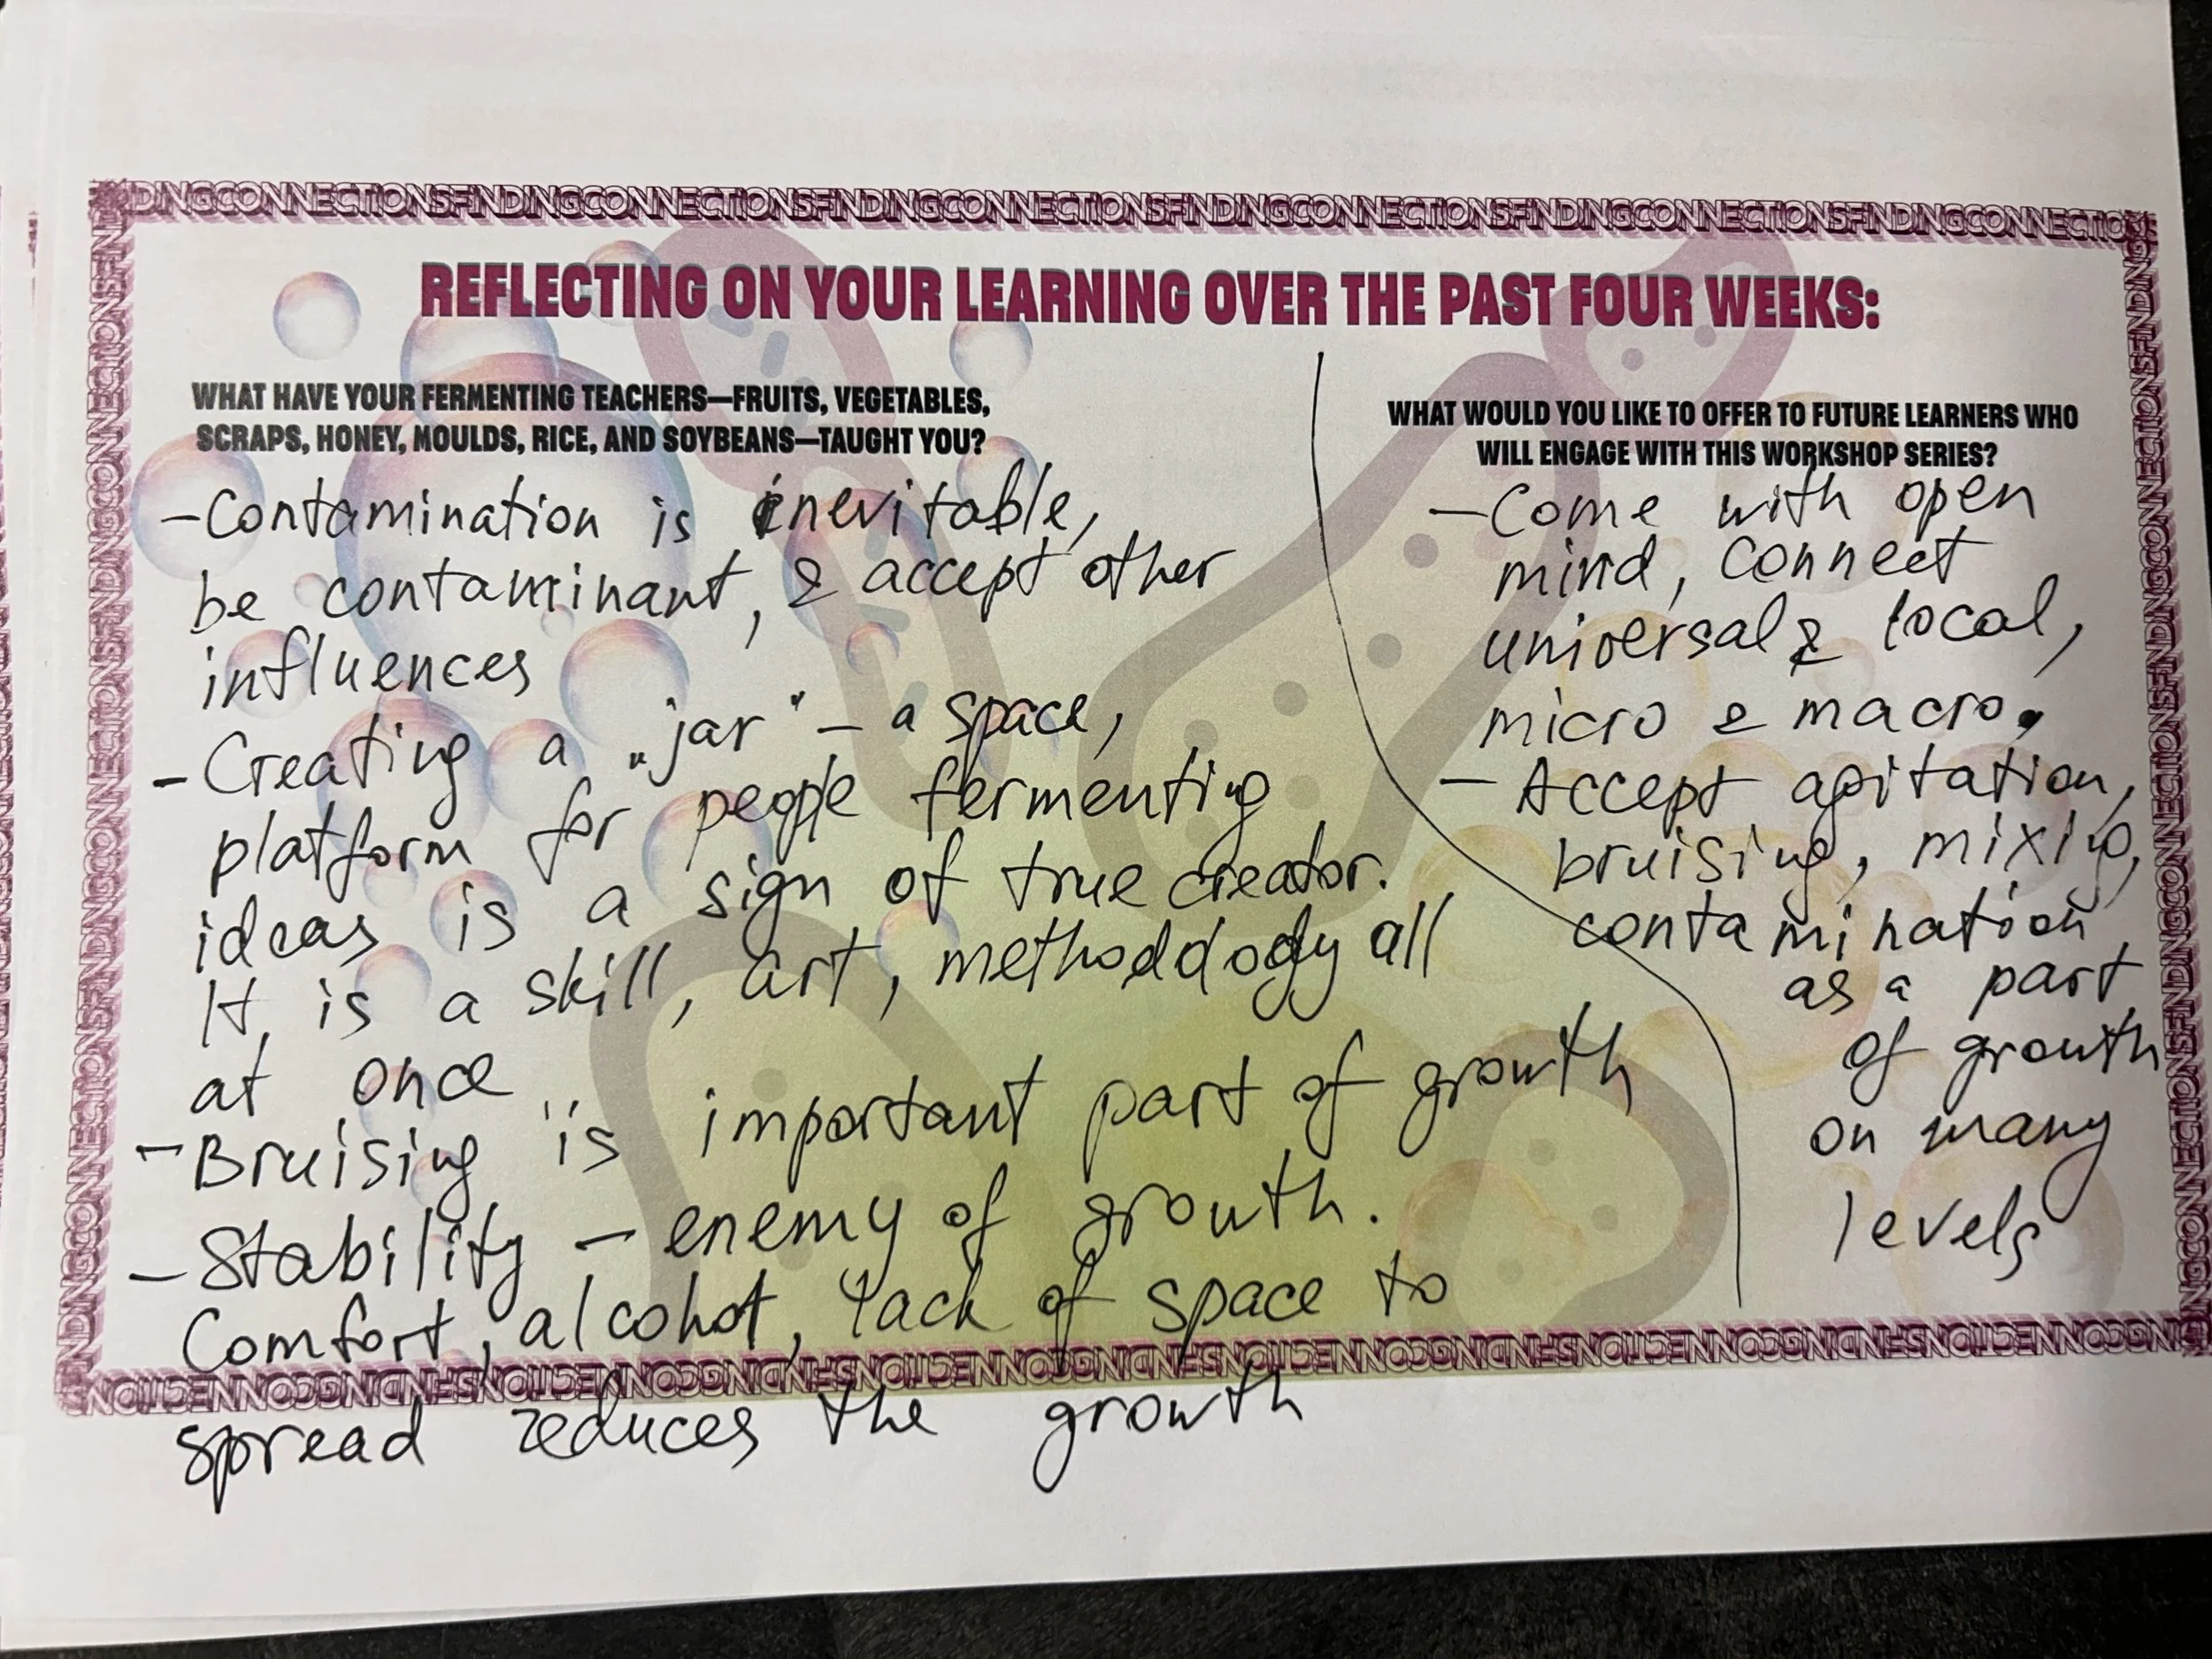 DINGCONNECTIONSFINDINGCONNECTIONSFINDINGCONNECTIONSFINDINGCONNECTIONSFINDINGCONNECTIONSFINDINGCONNECTIO
REFLECTING ON YOUR LEARNING OVER THE PAST FOUR WEEKS:
WHAT HAVE YOUR FERMENTING TEACHERS—FRUITS, VEGETABLES,
SCRAPS, HONEY, MOULDS, RICE, AND SOYBEANS—TAUGHT YOU?
- Contamination is inevitable,
be contaminant, & accept other
influences
- Creating a "jar" - a space,
platform for people fermenting
ideas is a sign of true creator.
It is a skill, art, methodology all
at once
- Bruising is important part of growth
- Stability - enemy of growth.
Comfort, alcohol, lack of space to
spread reduces the growth
WHAT WOULD YOU LIKE TO OFFER TO FUTURE LEARNERS WHO
WILL ENGAGE WITH THIS WORKSHOP SERIES?
- Come with open
mind, connect
universal & local,
micro & macro.
- Accept agitation,
bruising, mixing,
contamination
as a part
of growth
on many
levels